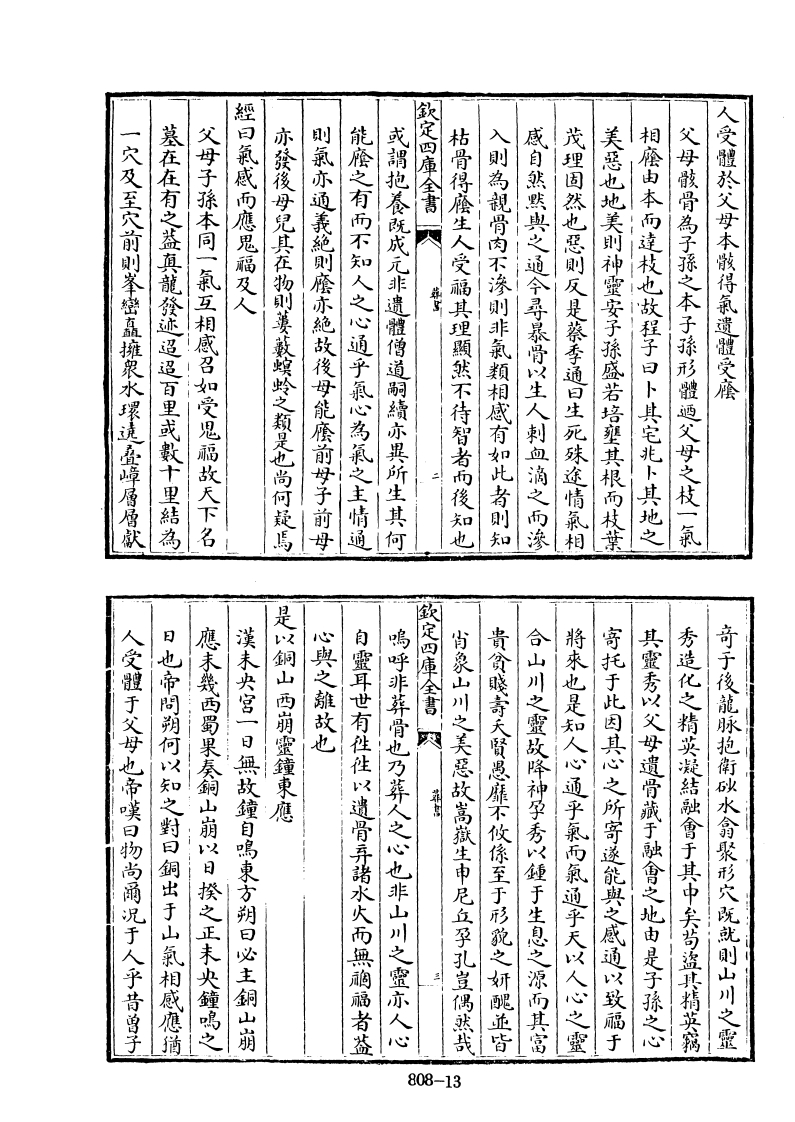 人受體於父母本骸得氣遺體受廕
父母骸骨為子孫之本子孫形體廼父母之枝一氣
相廕由本而達枝也故程子曰卜其宅兆卜其地之
美惡也地美則神靈安子孫盛若培壅其根而枝葉
茂理固然也惡則反是蔡季通曰生死殊途情氣相
感自然黙與之通今尋暴骨以生人刺血滴之而滲
入則為親骨肉不滲則非氣類相感有如此者則知
枯骨得廕生人受福其理顯然不待智者而後知也
欽定四庫全書
葬書
二
或謂抱養既成元非遺體僧道嗣續亦異所生其何
能廕之有而不知人之心通乎氣心為氣之主情通
則氣亦通義絶則廕亦絶故後母能廕前母子前母
亦發後母兒其在物則蔞藙螟蛉之類是也尚何疑焉
經曰氣感而應鬼福及人
父母子孫本同一氣互相感召如受鬼福故天下名
墓在在有之葢真龍發迹迢迢百里或數十里結為
一穴及至穴前則峯巒矗擁衆水環遶疊嶂層層獻
奇于後龍脉抱衛砂水翕聚形穴既就則山川之靈
秀造化之精英凝結融會于其中矣茍盜其精英竊
其靈秀以父母遺骨藏于融會之地由是子孫之心
寄托于此因其心之所寄遂能與之感通以致福于
將來也是知人心通乎氣而氣通乎天以人心之靈
合山川之靈故降神孕秀以鍾于生息之源而其富
貴貧賤壽夭賢愚靡不攸係至于形貌之妍醜並皆
肖象山川之美惡故嵩嶽生申尼丘孕孔豈偶然哉
欽定四庫全書
葬書
三
嗚呼非葬骨也乃葬人之心也非山川之靈亦人心
自靈耳世有徃徃以遺骨弃諸水火而無禍福者葢
心與之離故也
是以銅山西崩靈鐘東應
漢未央宮一日無故鐘自鳴東方朔曰必主銅山崩
應未幾西蜀果奏銅山崩以日揆之正未央鐘鳴之
日也帝問朔何以知之對曰銅出于山氣相感應猶
人受體于父母也帝嘆曰物尚爾况于人乎昔曽子
808-13